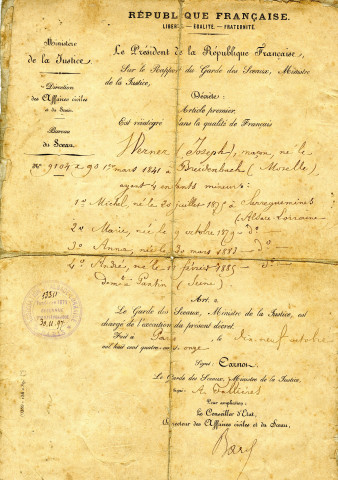 RÉPUBLIQUE FRANÇAISE.
LIBERTÉ — ÉGALITÉ — FRATERNITÉ.
Ministère
de la Justice.
Direction
des Affaires civiles
et du Sceau.
Bureau
du Sceau.
Le Président de la République Française,
Sur le Rapport du Garde des Sceaux, Ministre
de la Justice,
Décrète:
Article premier.
Est réintégré dans la qualité de Français
Werner (Joseph), maçon, né le
No 9104 x 90 1er mars 1841 à Breidenbach (Moselle),
ayant 4 enfants mineurs:
1o Michel, né le 20 juillet 1875 à Sarreguemines
(Alsace Lorraine
2o Marie, née le 9 octobre 1879 - do
3o Anna, née le 20 mars 1883 - do
4o André, né le février 1885 - do
demt à Pantin (Seine)
Art. 2
Le Garde des Sceaux, Ministre de la Justice, est
chargé de l'exécution du présent décret.
Fait à Paris, le dix-neuf octobre
mil huit cent quatre-vingt-onze
Signé: Carnot
Le Garde des Sceaux, Ministre de la Justice,
Signé: A. Fallières
Pour ampliation:
Le Conseiller d'État,
Directeur des Affaires civiles et du Sceau,
13311
30.11.97